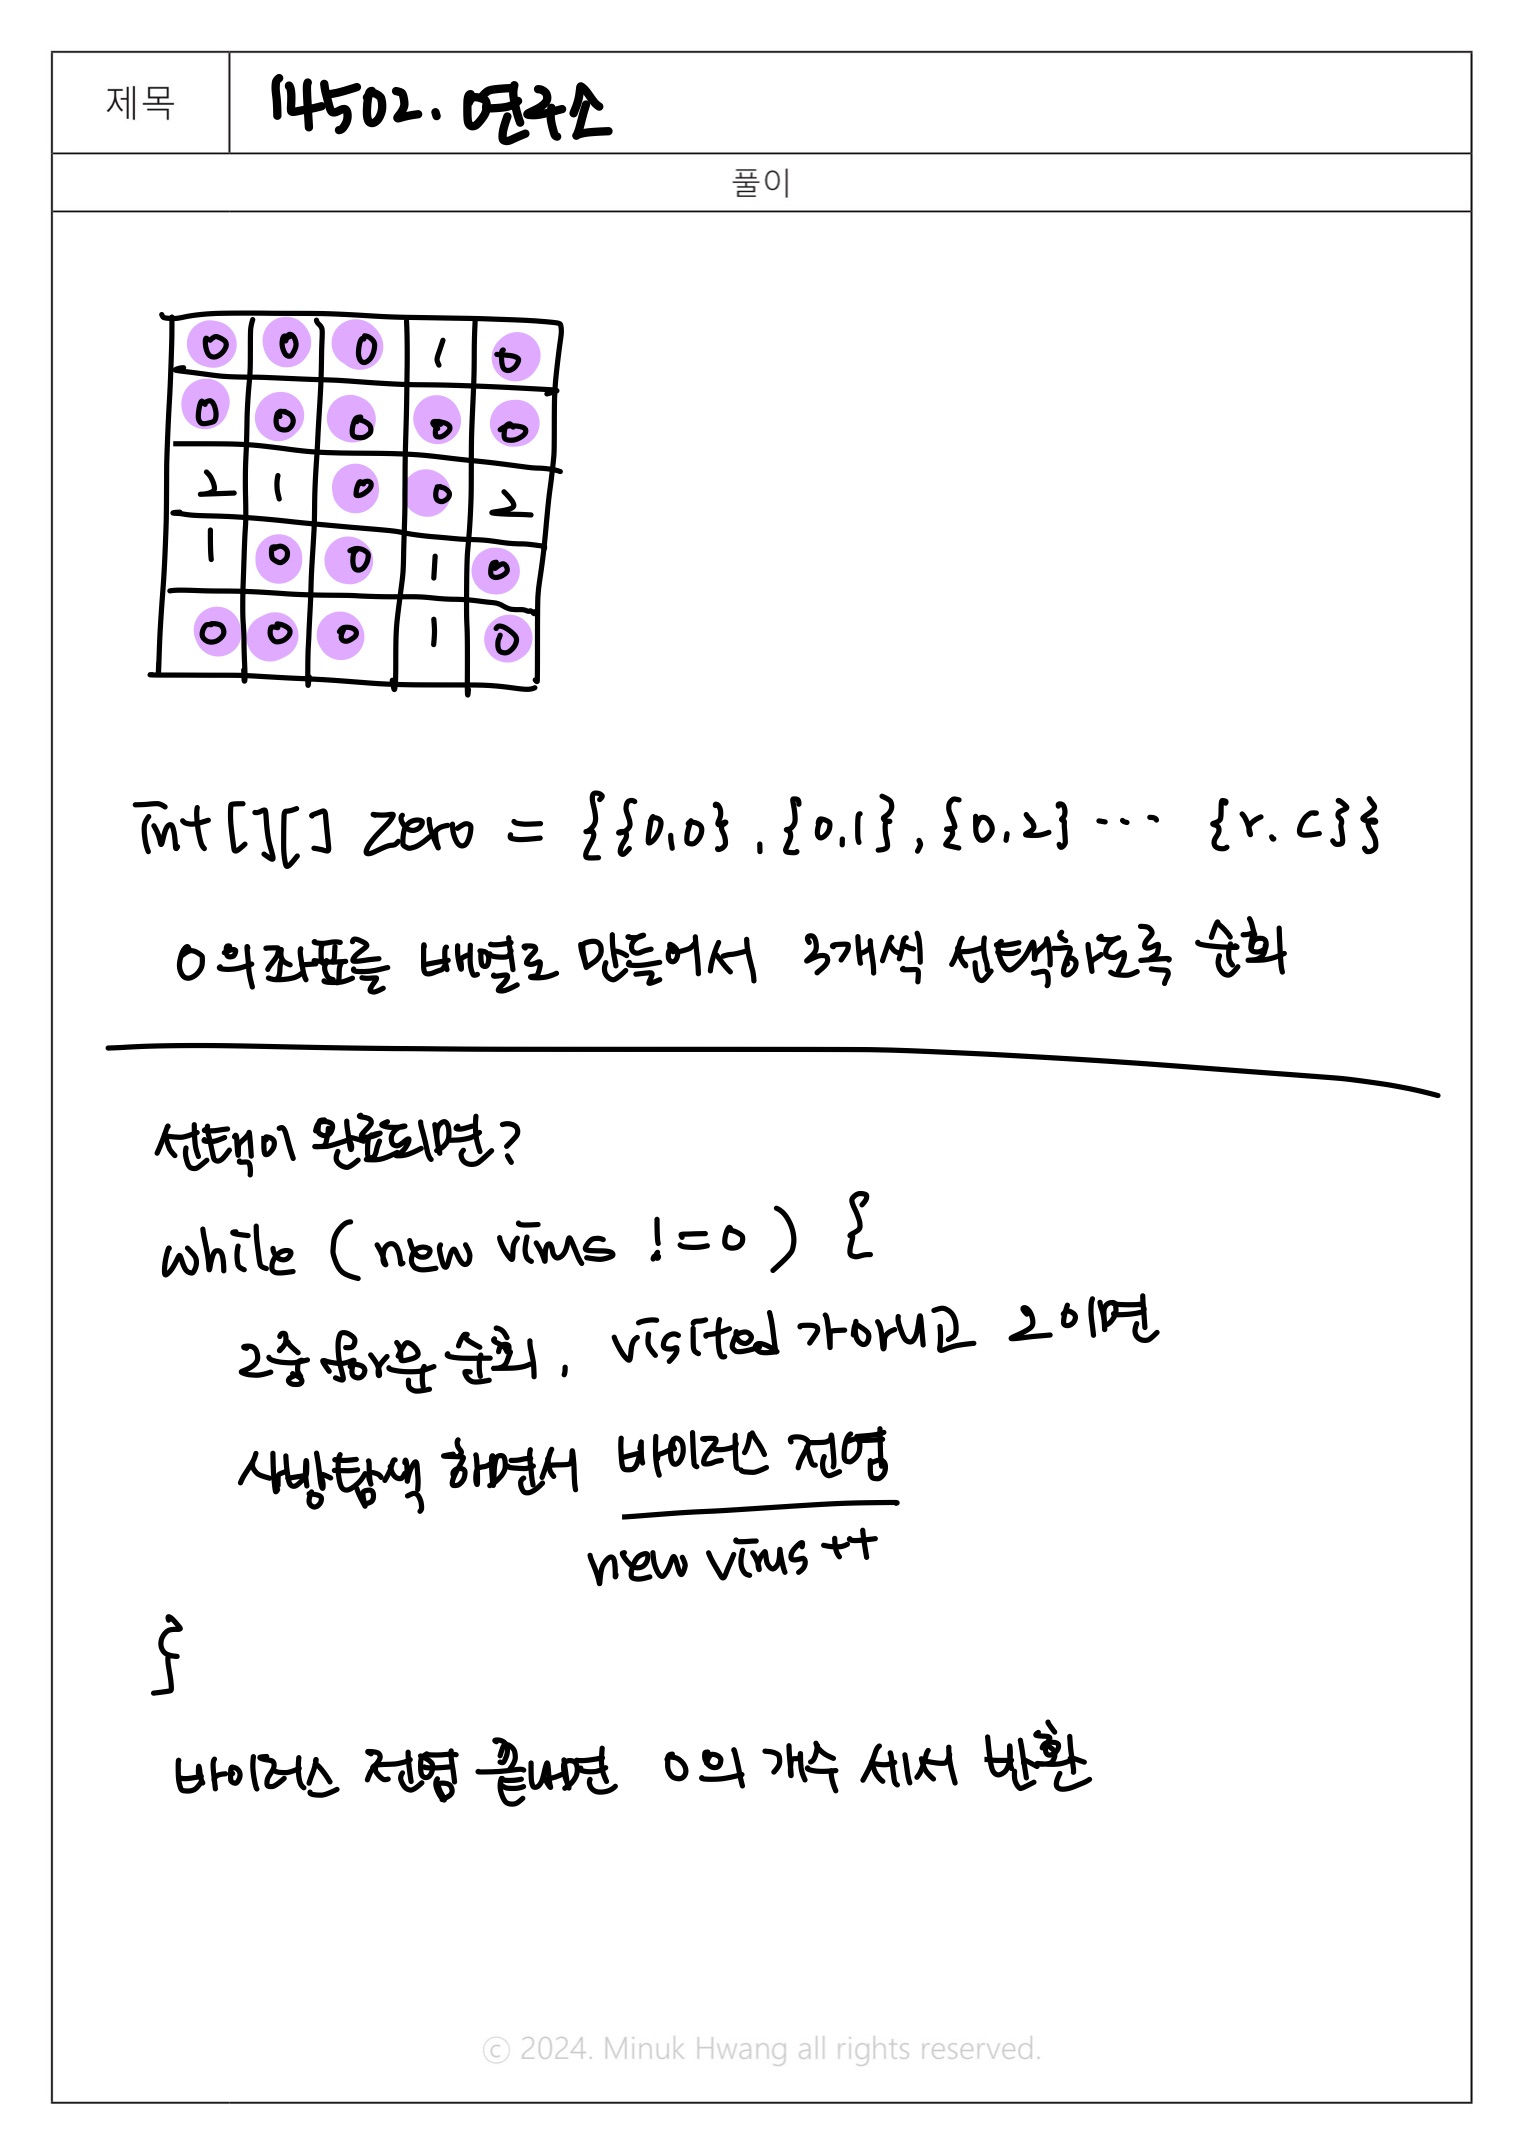 제목 14502. 연구소
풀이
0 0 0 1 0
0 0 0 0 0
2 1 0 0 2
1 0 0 1 0
0 0 0 1 0
int [][] zero = {{0,0}, {0,1}, {0,2} ··· {r.c}}
0의 좌표를 배열로 만들어서 3개씩 선택하도록 순회
선택이 완료되면?
while (new virus != 0) {
2중 for문 순회, visited가 아니고 2이면
사방탐색 하면서 바이러스 전염
new virus ++
}
바이러스 전염 끝내면 0의 개수 세서 반환
© 2024. Minuk Hwang all rights reserved.